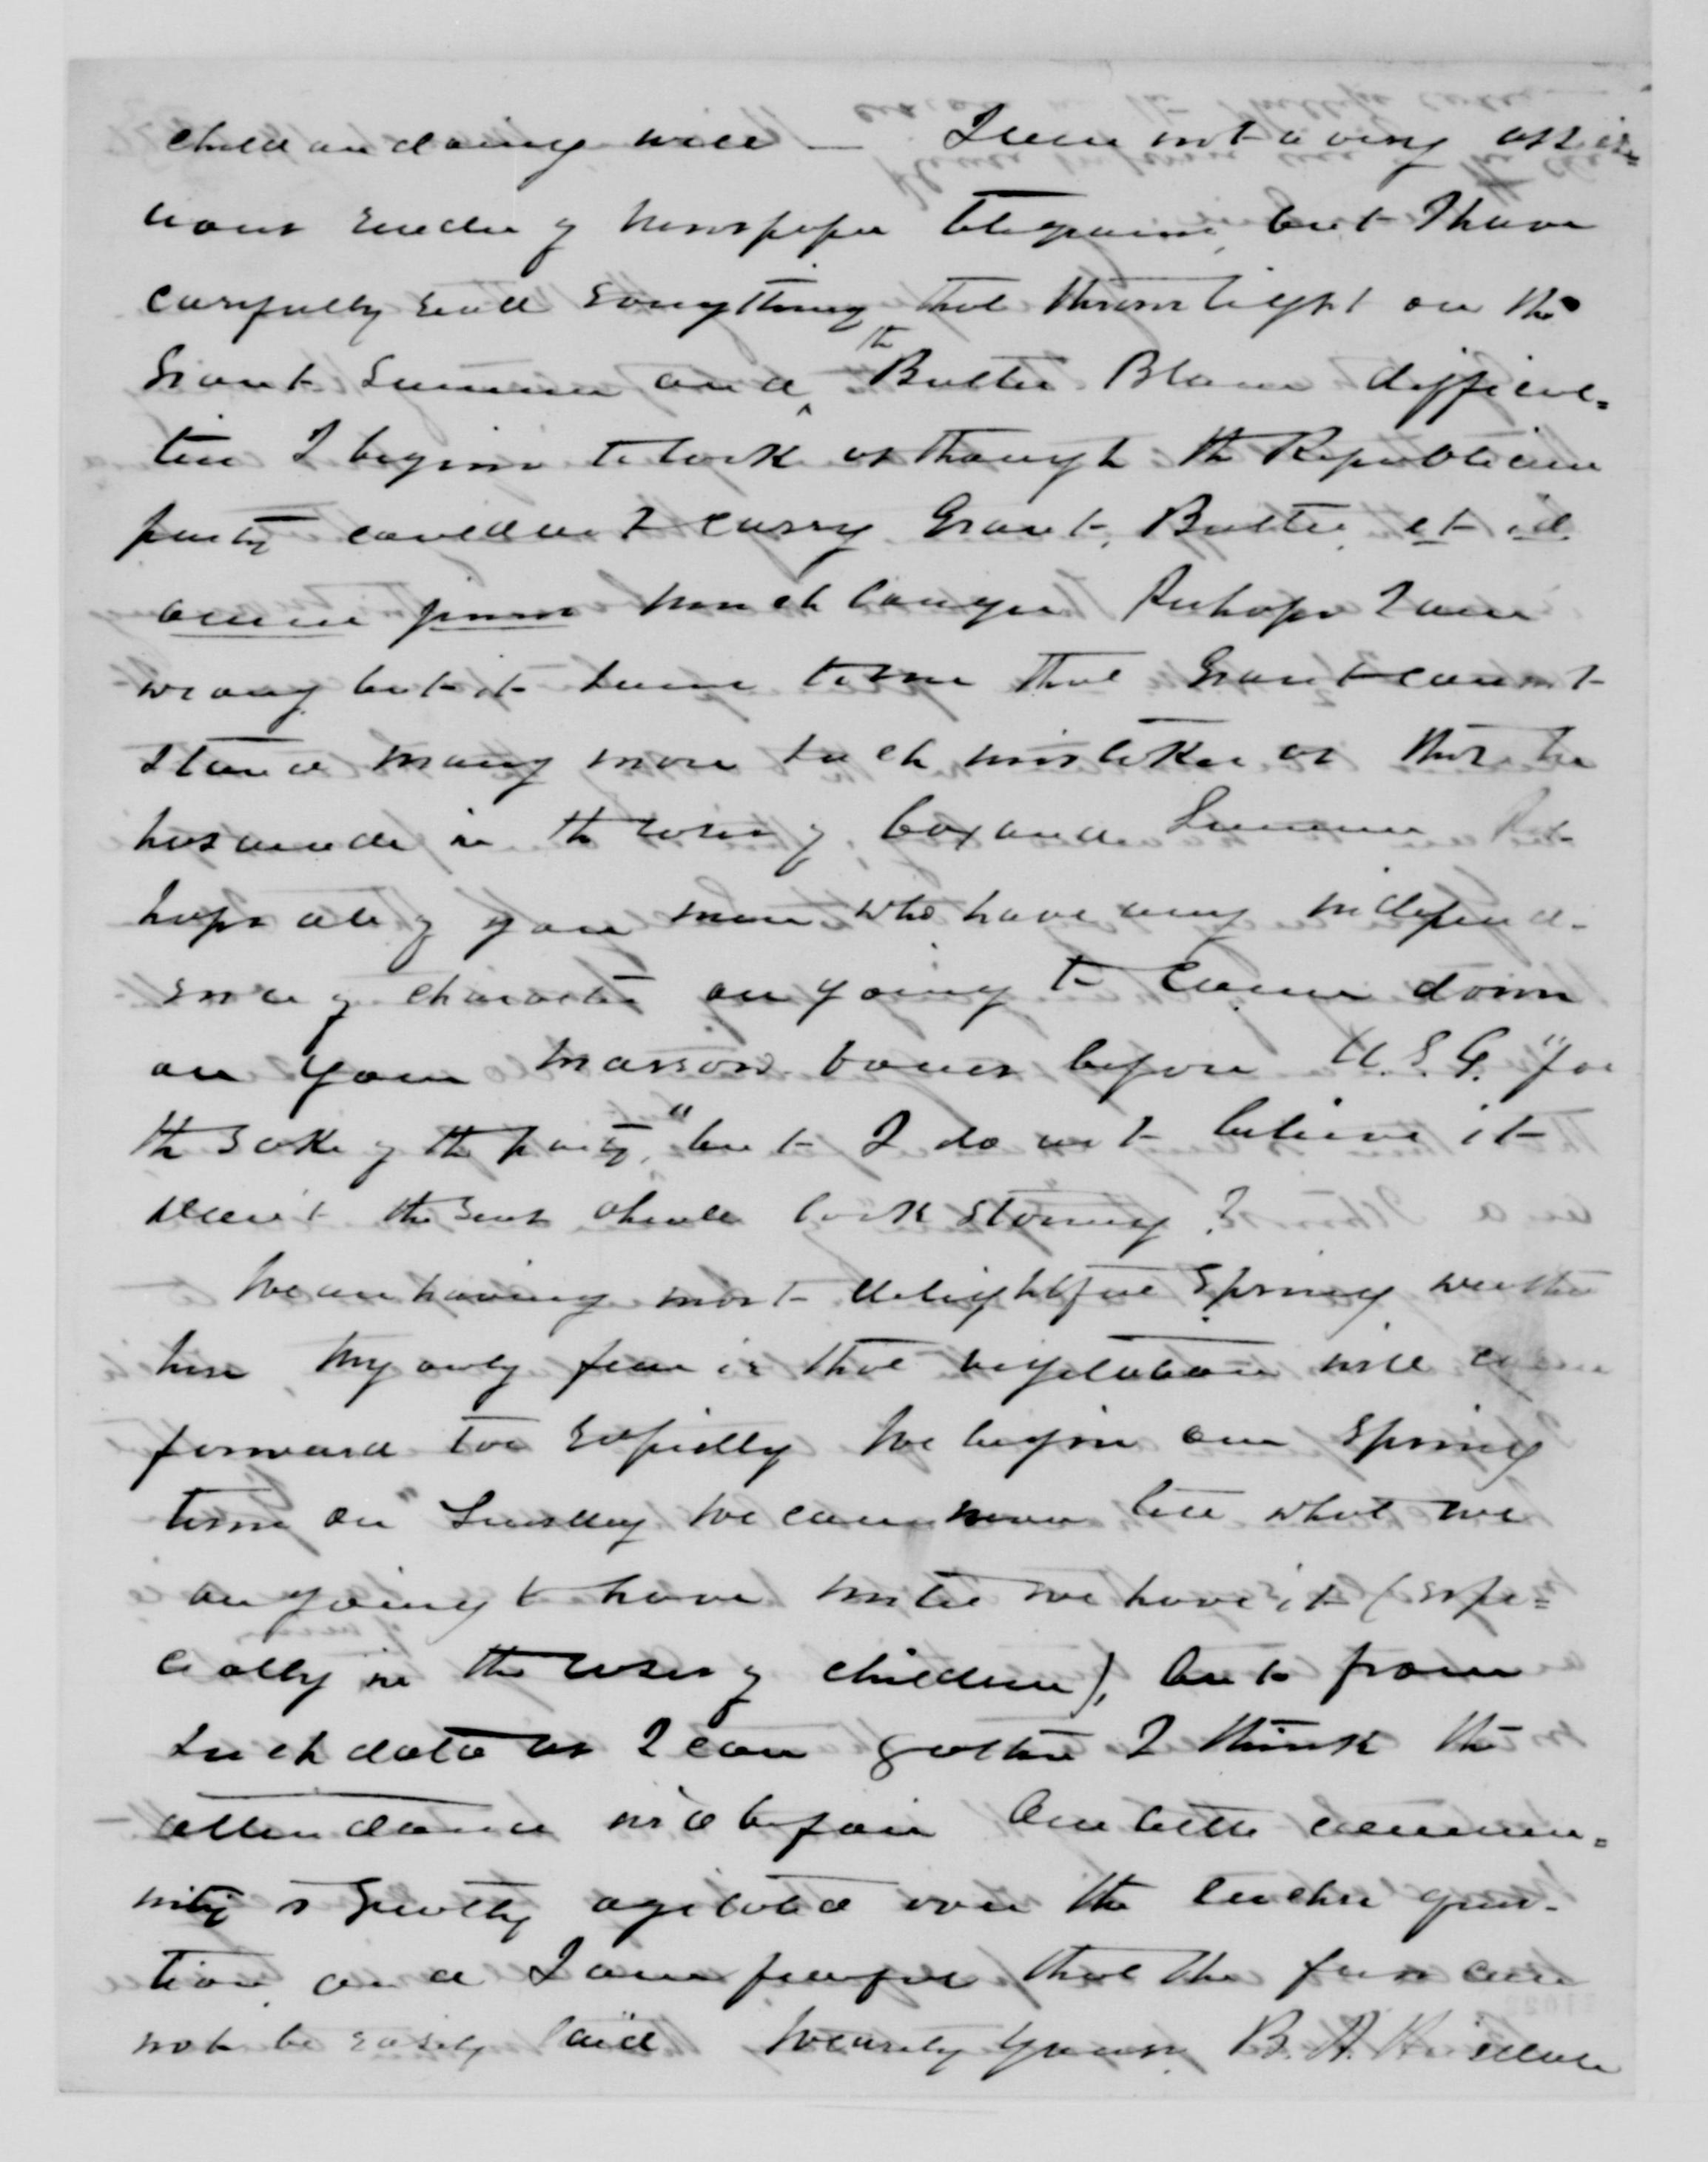 child are doing well — I am not a very assid=
uous reader of newspaper telegrams, but I have
carefully read everything that throws light on the
Grant Sumner and the Butler Blaine difficul=
ties It begins to look as though the Republican
party could not carry Grant, Butler, et id
omne genus much longer Perhaps I am
wrong but it seems to me that Grant cannot
stand many more such mistakes as those he
has made in the cases of Cox and Sumner Per-
haps all of you men who have any independ-
ence of character are going to come down
on your marrow bones before U.S.G. "for
the sake of the party," but I do not believe it
Don't the east look stormy?
We are having most delightful Spring weather
here, My only fear is that vegetation will come
forward too rapidly We begin our Spring
term on Tuesday We can never tell what we
are going to have until we have it (espe=
cially in the case of children), but from
such data as I can gather I think the
attendance will be fair Our little commu=
nity is greatly agitated over the question
tion, and I am fearful that the can
not be easily laid Wearily Yours, B. A. Hinsdale